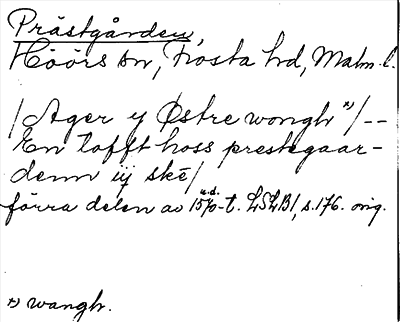 Prästgården,
Höörs sn, Frosta hd, Malm. l.
/Ager y Østre wongh *)/--
En tofft hoss prestegaar-
denn iij ske/
förra delen av 1570-t. LSLB1, s. 176. orig.
*) wangh.